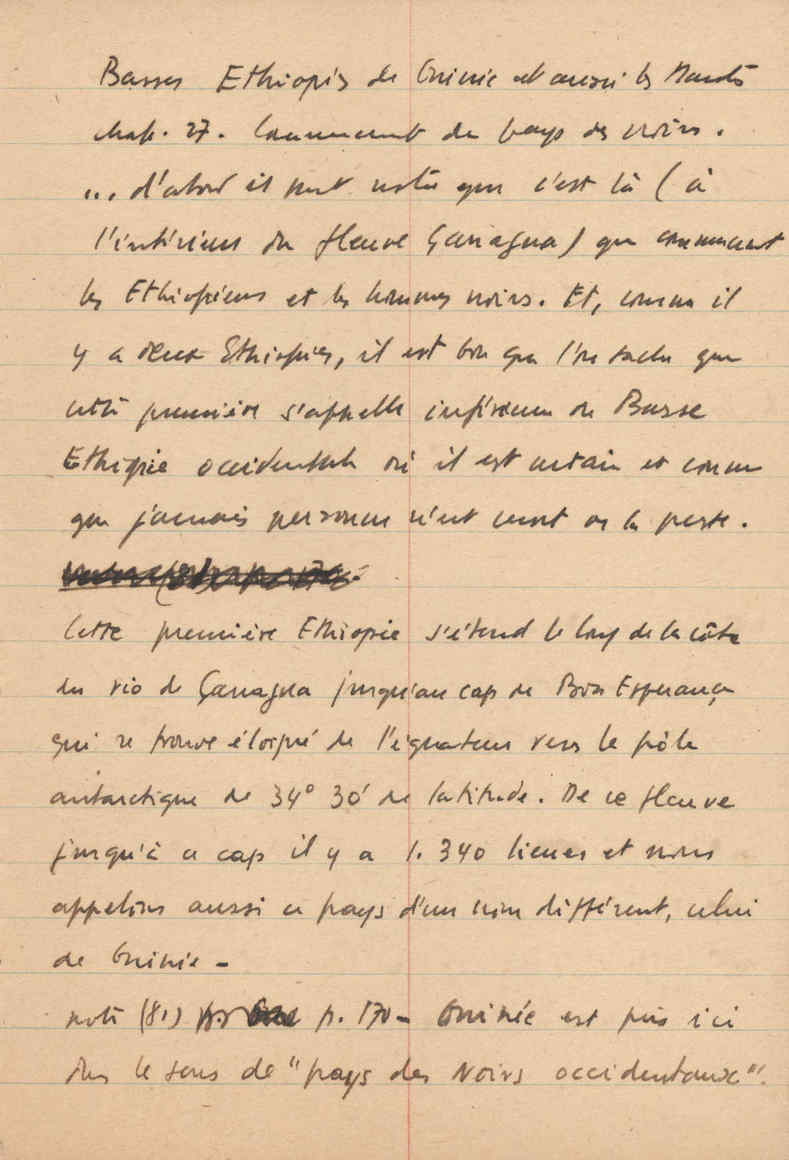 Basses Ethiopies de Guinée et aussi les
chap. 27. Commencement du pays des noirs.
... d'abord il faut noter que c'est là (à
l'intérieur du fleuve Çanagua) que commencent
les Ethiopiens et les hommes noirs. Et, comme il
y a deux Ethiopies, il est bon que l'on sache que
cette première s'appelle inférieure ou Basse
Ethiopie occidentale où il est certain et connu
que jamais personne n'est mort de la peste.
Cette première Ethiopie s'étend le long de la côte
du rio de Çanagua jusqu'au cap de Bon Esperance
qui se trouve éloigné de l'équateur vers le pôle
antarctique de 34° 30' de latitude. De ce fleuve
jusqu'à ce cap il y a 1.340 lieues et nous
appelons aussi ce pays d'un nom différent, celui
de Guinée -
note (81) p. 170 - Guinée est pris ici
dans le sens de "pays des Noirs occidentaux".